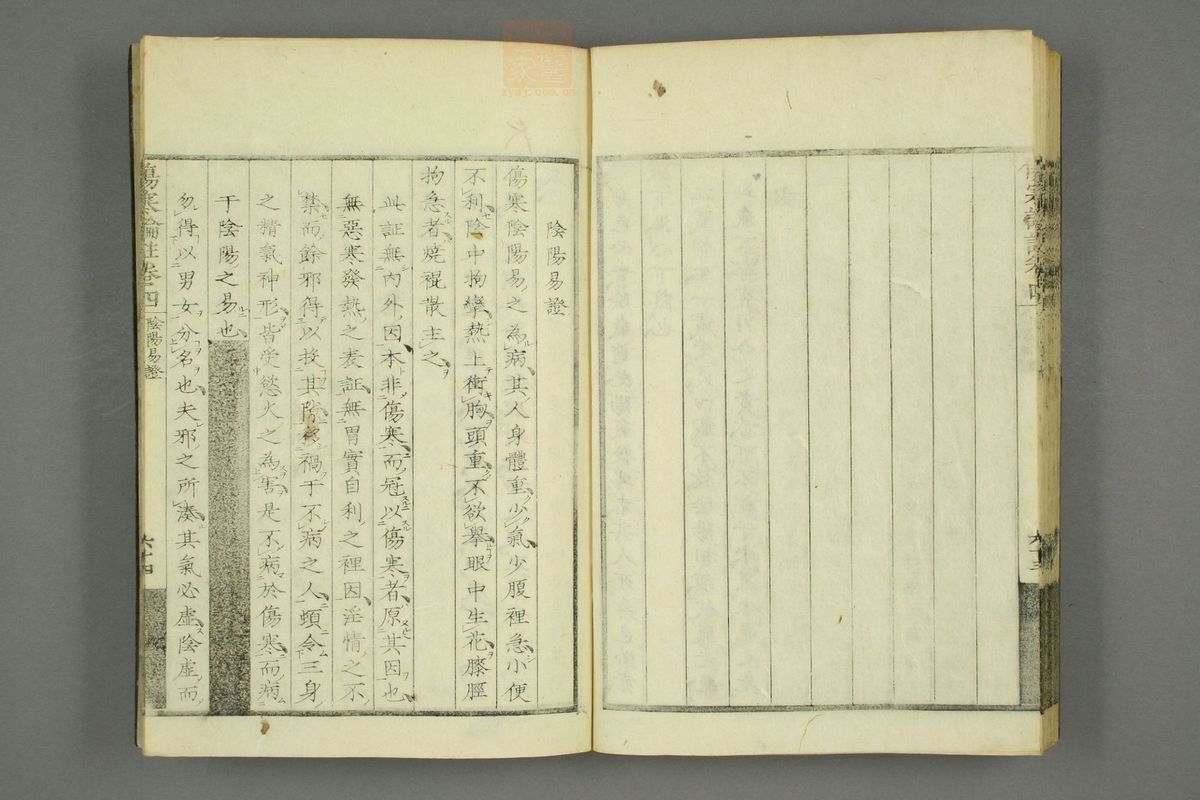 陰陽易證
傷寒陰陽易之為病其人身體重少氣少腹裡急小便
不利陰中拘攣熱上衝胸頭重不欲擧眼中生花膝脛
拘急者燒裩散主之
此証無內外因本非傷寒而冠以傷寒者原其因也
無惡寒發熱之表証無胃實自利之裡因淫情之不
禁而餘邪得以投其隙
禍于不病之人頓令三身
之精氣神形皆受慾火之為害是不病於傷寒而病
于陰陽之易也
勿得以男女分名也夫邪之所湊其氣必虛陰虛而
傷寒論註卷四
陰陽易證
六十四